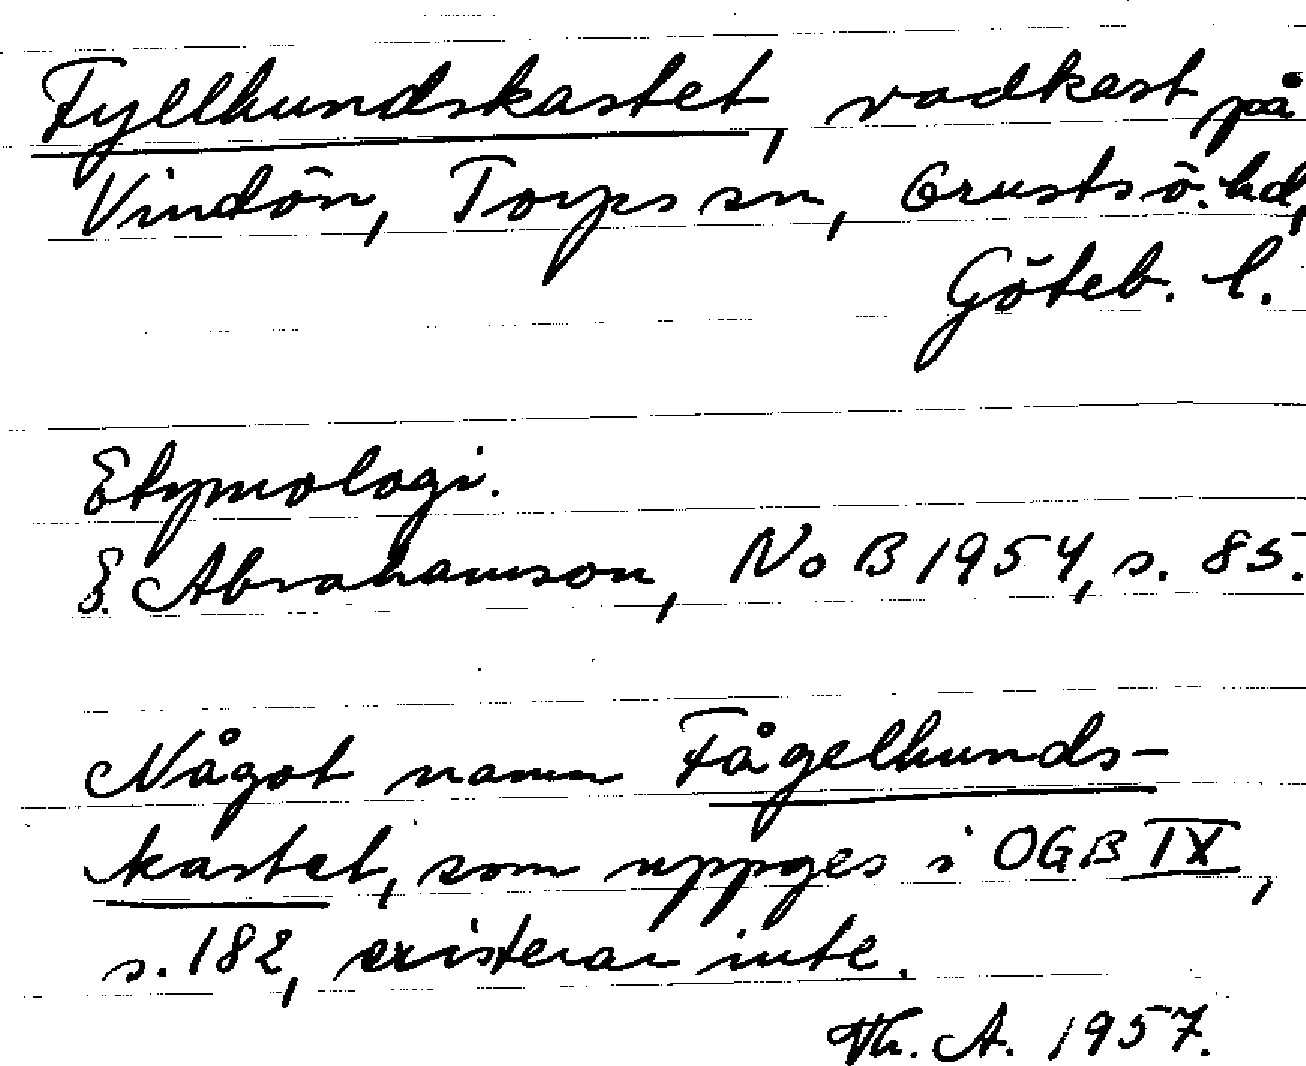 Fyllhundskastet, vadkast på
Vindön, Torps sn, Orusts ö. hd,
Göteb. l.
Etymologi.
E. Abrahamson, NoB 1954, s. 85.
Något namn Fågelhunds-
kastet, som uppges i OGB IX,
s. 182, existerar inte.
Th. A. 1957.